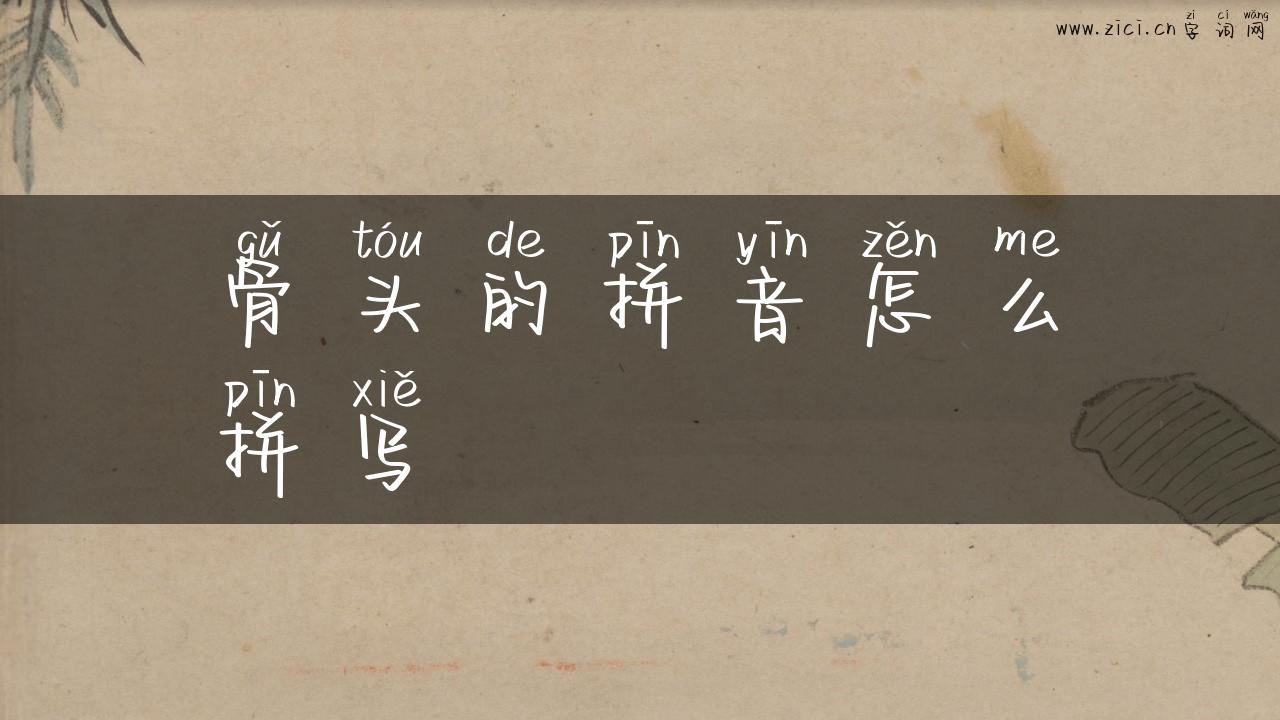 zì cí wǎng
www.zici.cn 字 词 网
gǔ tóu de pīn yīn zěn me
骨 头 的 拼 音 怎 么
pīn xiě
拼 写